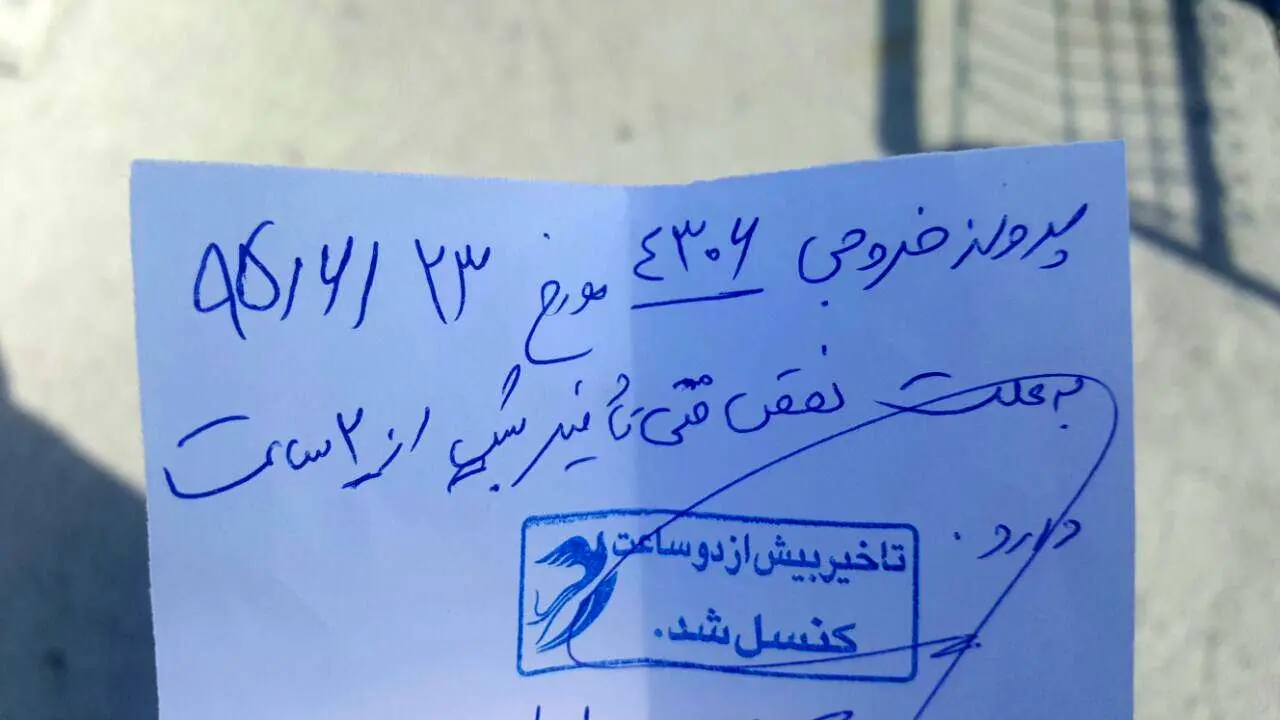 پرواز خروجی ۴۳۰۶ مورخ ۹۵/۶/۲۳
به علت نقص فنی تأخیر بیش از ۲ ساعت
دارد.
تاخیر بیش از دو ساعت
کنسل شد.